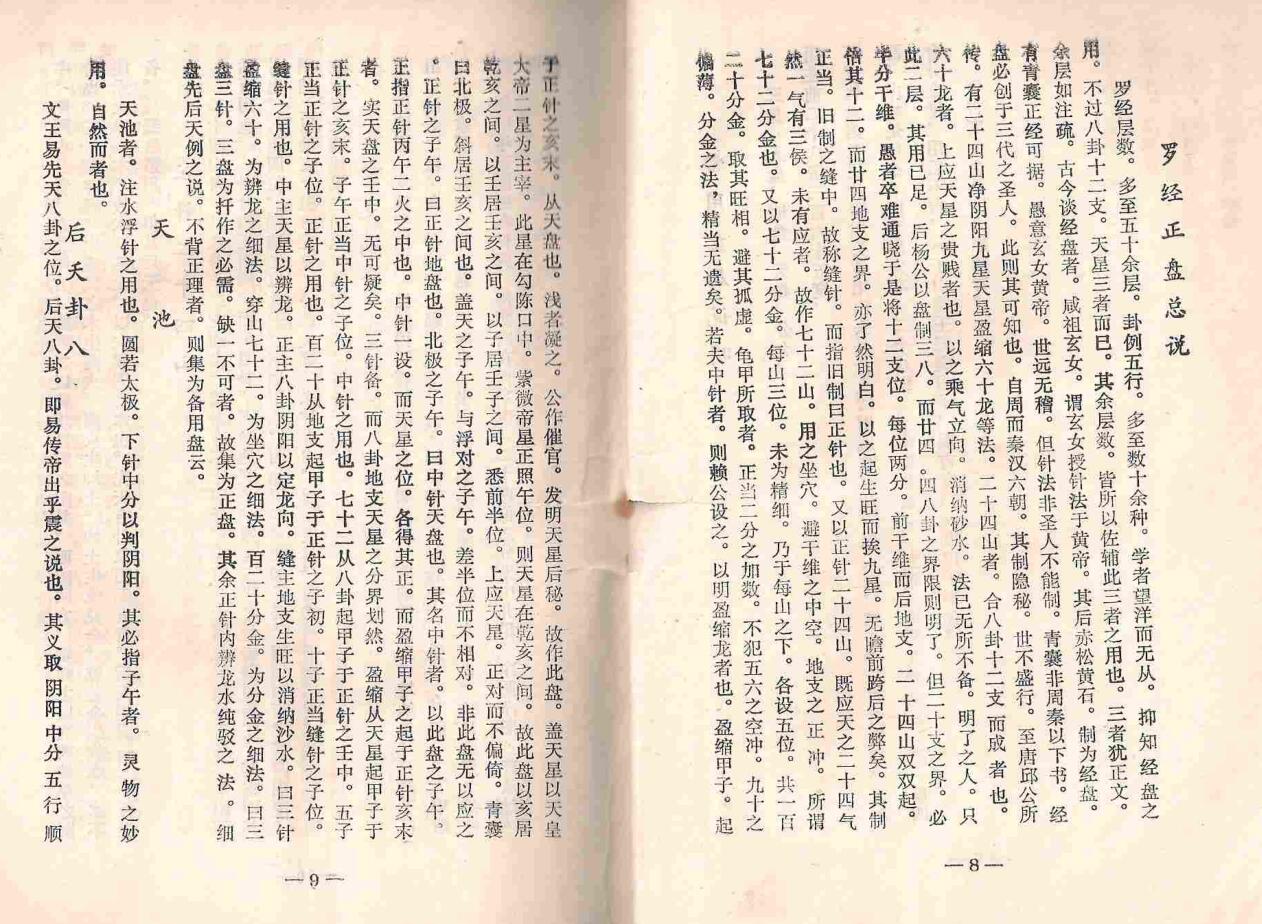 罗经正盘总说
罗经层数。多至五十余层。卦例五行。多至数十余种。学者望洋而无从。抑知经盘之
用。不过八卦十二支。天星三者而已。其余层数。皆所以佐辅此三者之用也。三者犹正文。
余层如注疏。古今谈经盘者。咸祖玄女。谓玄女授针法于黄帝。其后赤松黄石。制为经盘。
有青囊正经可据。愚意玄女黄帝。世远无稽。但针法非圣人不能制。青囊非周秦以下书。经
盘必创于三代之圣人。此则其可知也。自周而秦汉六朝。其制隐秘。世不盛行。至唐邱公所
传。有二十四山净阴阳九星天星盈缩六十龙等法。二十四山者。合八卦十二支而成者也。
六十龙者。上应天星之贵贱者也。以之乘气立向。消纳砂水。法已无所不备。明了之人。只
此二层。其用已足。后杨公以盘制三八。而廿四。四八卦之界限则明了。但二十支之界。必
半分干维。愚者卒难通晓于是将十二支位。每位两分。前干维而后地支。二十四山双双起。
倍其十二。而廿四地支之界。亦了然明白。以之起生旺而挨九星。无瞻前跨后之弊矣。其制
正当。旧制之缝中。故称缝针。而指旧制曰正针也。又以正针二十四山。既应天之二十四气
然一气有三侯。未有应者。故作七十二山。用之坐穴。避干维之中空。地支之正冲。所谓
七十二分金也。又以七十二分金。每山三位。未为精细。乃于每山之下。各设五位。共一百
二十分金。取其旺相。避其孤虚。龟甲所取者。正当二分之加数。不犯五六之空冲。九十之
偏薄。分金之法，精当无遗矣。若夫中针者。则赖公设之。以明盈缩龙者也。盈缩甲子。起
—8—
于正针之亥末。从天盘也。浅者凝之。公作催官。发明天星后秘。故作此盘。盖天星以天皇
大帝二星为主宰。此星在勾陈口中。紫微帝星正照午位。则天星在乾亥之间。故此盘以亥居
乾亥之间。以壬居壬亥之间。以子居壬子之间。悉前半位。上应天星。正对而不偏倚。青囊
曰北极。斜居壬亥之间也。盖天之子午。与浮对之子午。差半位而不相对。非此盘无以应之
。正针之子午。曰正针地盘也。北极之子午。曰中针天盘也。其名中针者。以此盘之子午。
正指正针丙午二火之中也。中针一设。而天星之位。各得其正。而盈缩甲子之起于正针亥末
者。实天盘之壬中。无可疑矣。三针备。而八卦地支天星之分界划然。盈缩从天星起甲子于
正针之亥末。子午正当中针之子位。中针之用也。七十二从八卦起甲子于正针之壬中。五子
正当正针之子位。正针之用也。百二十从地支起甲子于正针之子初。十子正当缝针之子位。
缝针之用也。中主天星以辨龙。正主八卦阴阳以定龙向。缝主地支生旺以消纳沙水。曰三针
盈缩六十。为辨龙之细法。穿山七十二。为坐穴之细法。百二十分金。为分金之细法。曰三
盘三针。三盘为扦作之必需。缺一不可者。故集为正盘。其余正针内辨龙水纯驳之法。细
盘先后天例之说。不背正理者。则集为备用盘云。
天池
天池者。注水浮针之用也。圆若太极。下针中分以判阴阳。其必指子午者。灵物之妙
用。自然而者也。
后天卦八
文王易先天八卦之位。后天八卦。即易传帝出乎震之说也。其义取阴阳中分五行顺
—9—